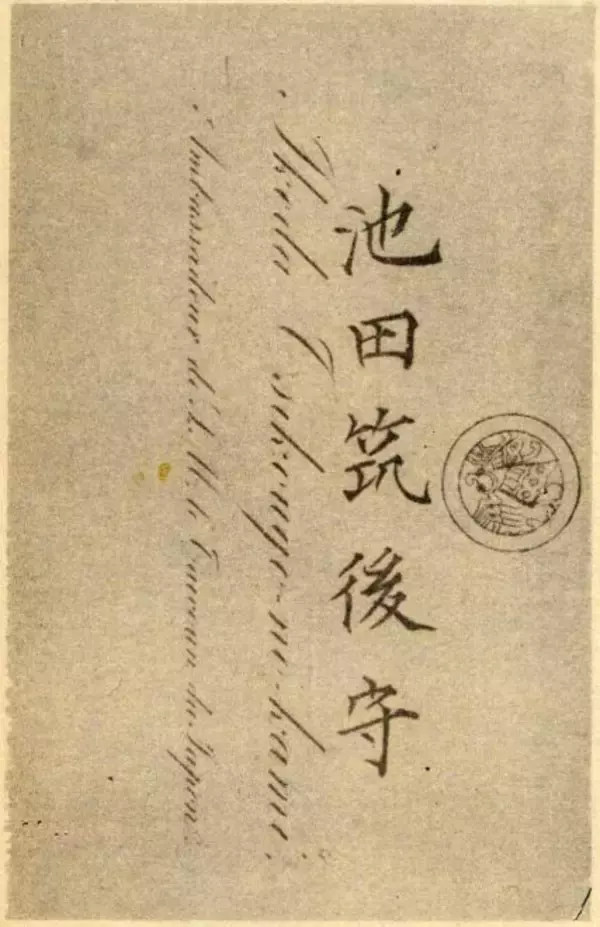 池田筑後守
Ikéda Tsikougo-no-kami.
Ambassadeur de S. M. le Taïcoun du Japon.